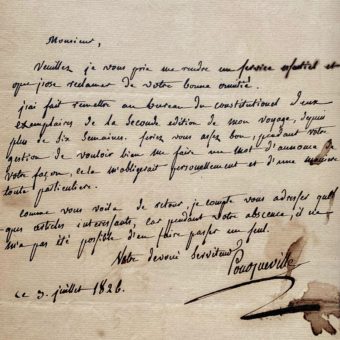 Monsieur,
Veuillez je vous prie me rendre un service essentiel et
que j'ose reclamer de votre bonne amitié.
j'ai fait remettre au bureau du constitutionel deux
exemplaires de la seconde edition de mon voyage, depuis
plus de six semaines. seriez vous assez bon, pendant votre
gestion de vouloir bien me faire un mot d'annonce de
votre façon, cela m'obligerait personellement et d'une maniere
toute particuliere.
comme vous voila de retour, je compte vous adresser quel
ques articles interessants, car pendant votre absence, il ne
m'a pas été possible d'en faire passer un seul.
Votre devoué serviteur
Pouqueville
ce 3. juillet 1826.